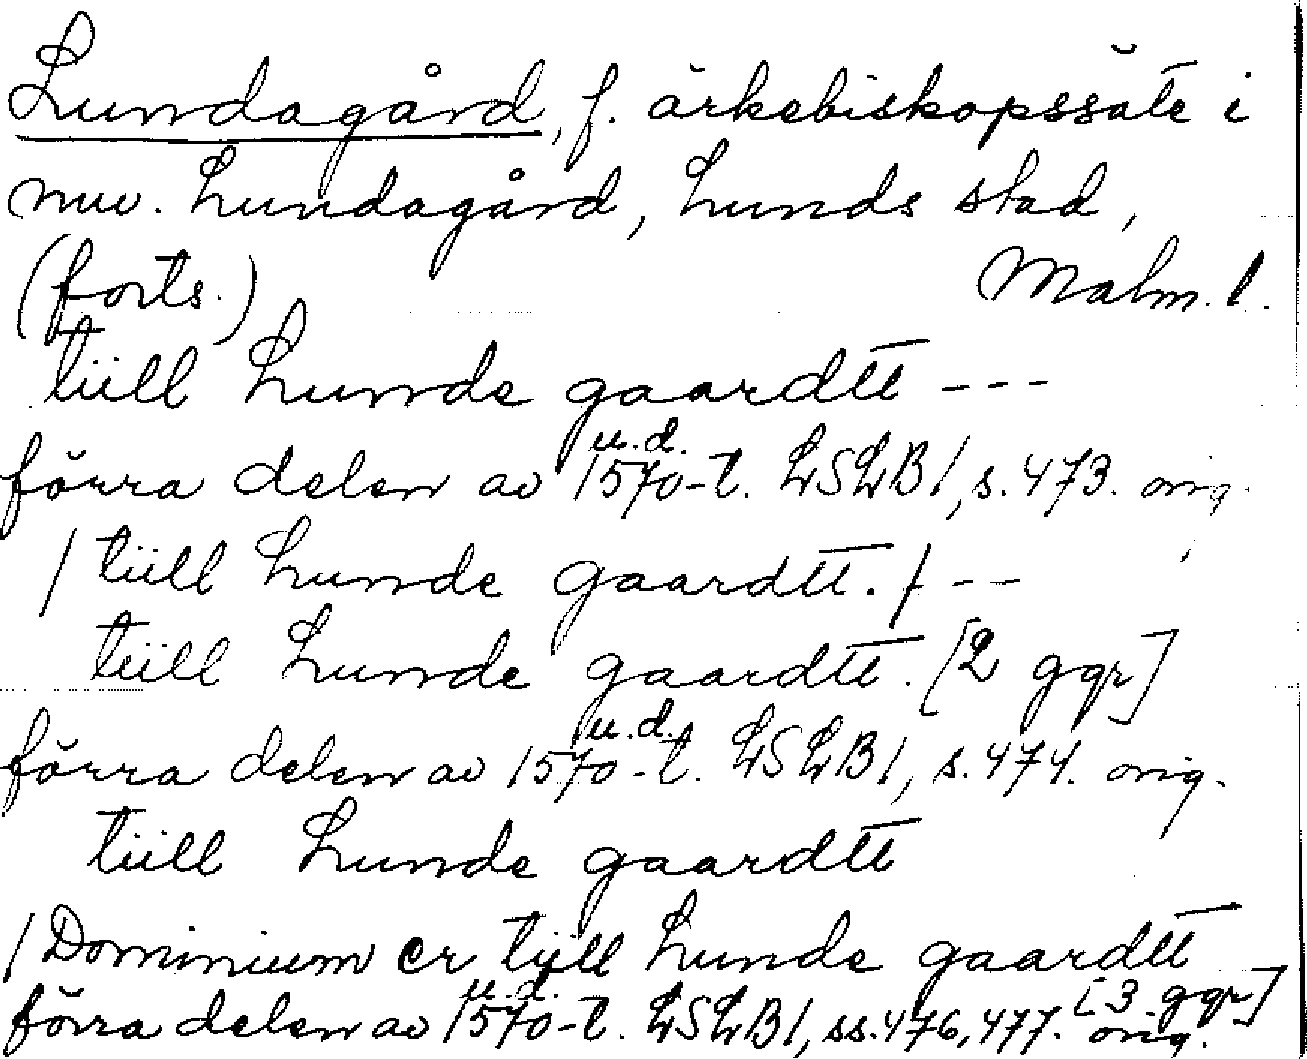 Lundagård, f. ärkebiskopssäte i
nuv. Lundagård, Lunds stad,
(forts.) Malm. l.
tiill Lunde gaardtt ---
u.d.
förra delen av 1570-t. LSLB1, s. 473. orig.
/ tiill Lunde gaardtt. / --
tiill Lunde gaardtt. [2 ggr]
u.d.
förra delen av 1570-t. LSLB1, s. 474. orig.
tiill Lunde gaardtt
/ Dominium er tijll Lunde gaardtt
u.d. [3 ggr]
förra delen av 1570-t. LSLB1, ss. 476, 477. orig.